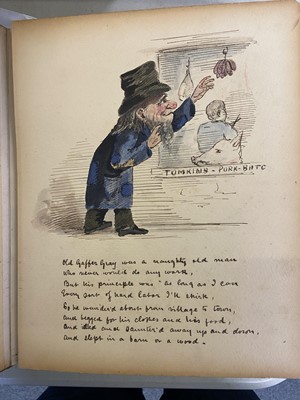 TOMKINS - PORK-BUTC
Old Gaffer Gray was a naughty old man
Who never would do any work,
But his principle was "as long as I can
Every sort of hard labor I'll shirk,
So he wander'd about from village to town,
And begged for his clothes and his food,
And idled and saunter'd away up and down,
And slept in a barn or a wood.